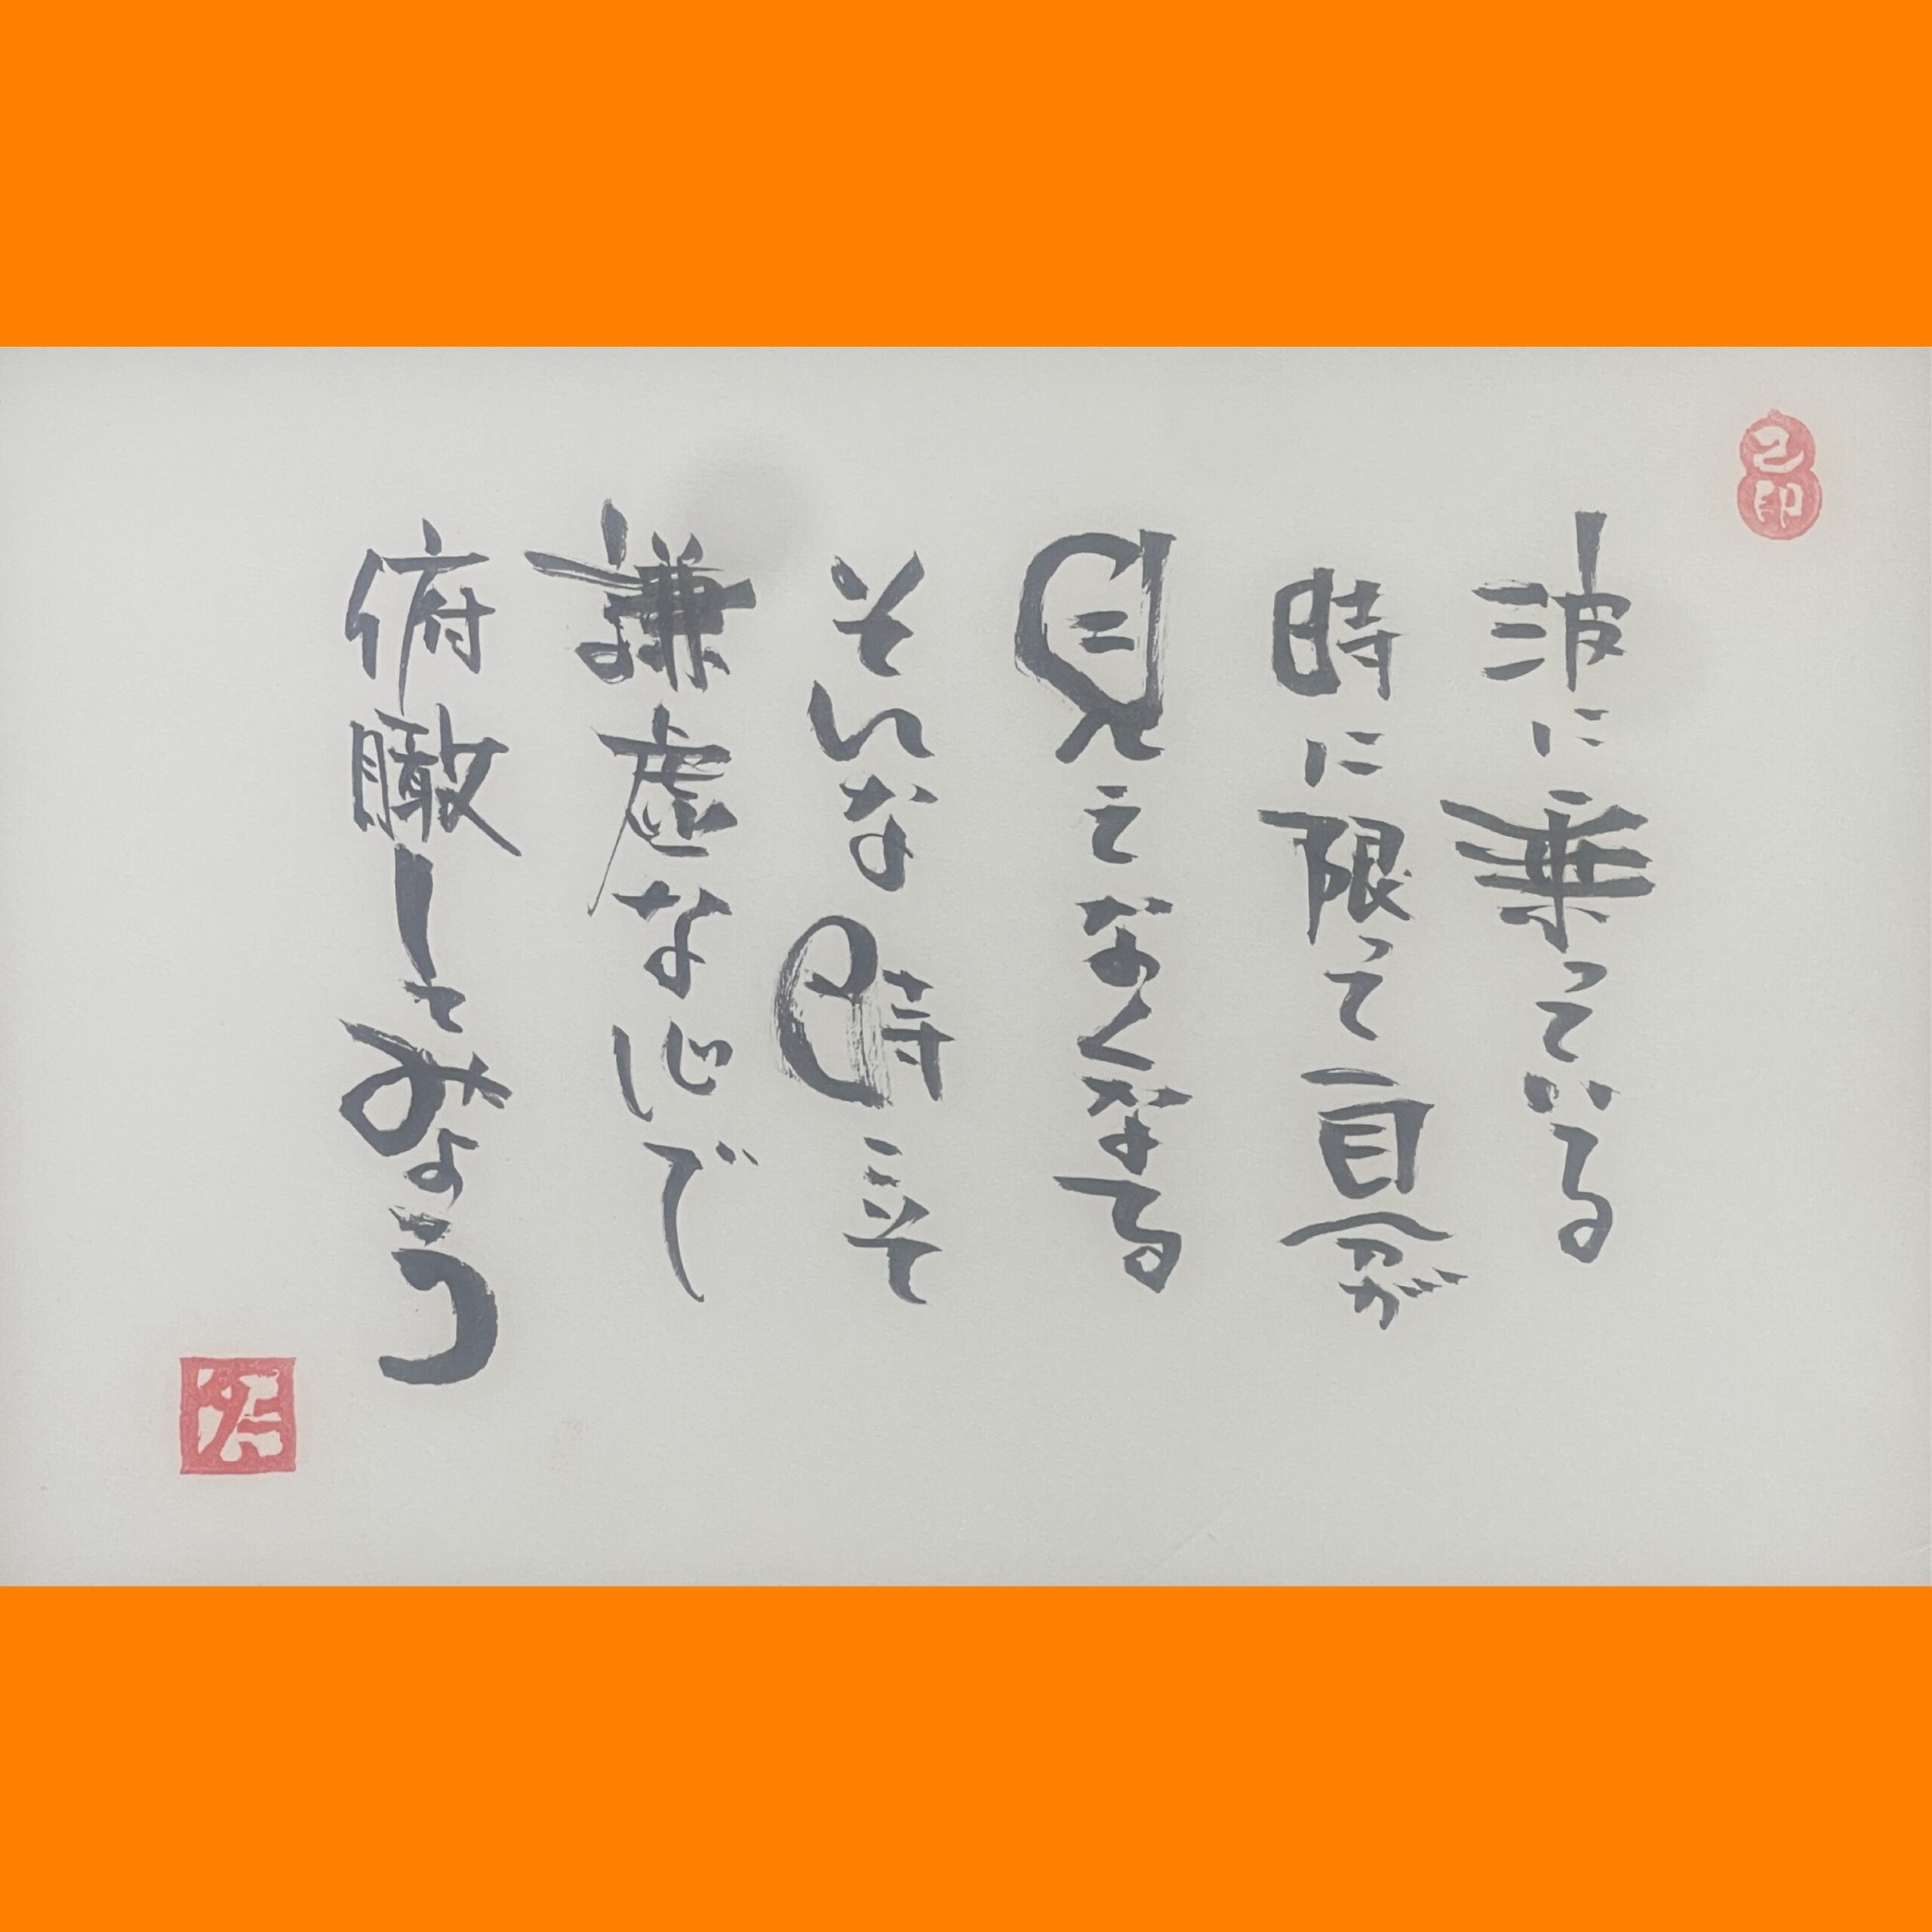 己印
波に乗っている
時に限って自分が
見えなくなる
そんな時こそ
謙虚な心で
俯瞰してみよう